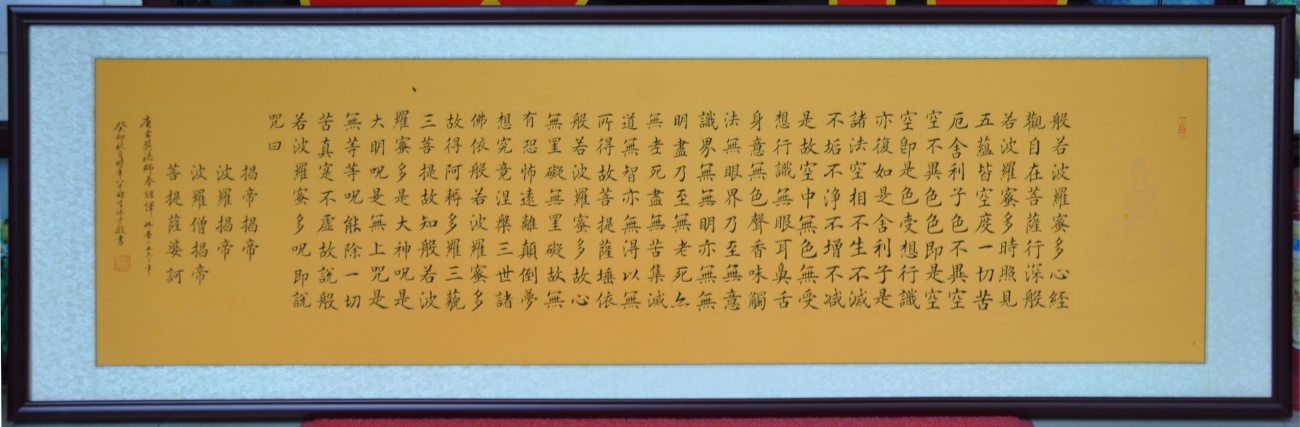 般若波羅蜜多心經
觀自在菩薩行深般
若波羅蜜多時照見
五蘊皆空度一切苦
厄舍利子色不異空
空不異色色即是空
空即是色受想行識
亦復如是舍利子是
諸法空相不生不滅
不垢不淨不增不减
是故空中無色無受
想行識無眼耳鼻舌
身意無色聲香味觸
法無眼界乃至無意
識界無無明亦無無
明盡乃至無老死亦
無老死盡無苦集滅
道無智亦無得以無
所得故菩提薩埵依
般若波羅蜜多故心
無罣礙無罣礙故無
有恐怖遠離顛倒夢
想究竟涅槃三世諸
佛依般若波羅蜜多
故得阿耨多羅三藐
三菩提故知般若波
羅蜜多是大神呪是
大明呪是無上咒是
無等等呪能除一切
苦真實不虛故說般
若波羅蜜多呪即說
咒曰
揭帝揭帝
波羅揭帝
波羅僧揭帝
菩提薩婆訶
唐玄奘法師奉詔譯
癸卯秋 書